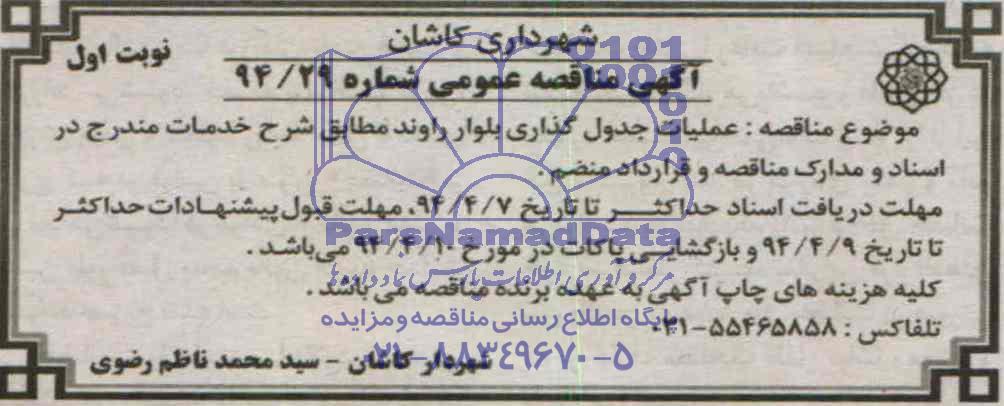 شهرداری کاشان
نوبت اول
آگهی مناقصه عمومی شماره ۹۴/۲۹
موضوع مناقصه : عملیات جدول گذاری بلوار راوند مطابق شرح خدمات مندرج در
اسناد و مدارک مناقصه و قرارداد منضم .
مهلت دریافت اسناد حداکثر تا تاریخ ۹۴/۴/۷، مهلت قبول پیشنهادات حداکثر
تا تاریخ ۹۴/۴/۹ و بازگشایی پاکات در مورخ ۹۴/۴/۱۰ می‌باشد .
کلیه هزینه های چاپ آگهی به عهده برنده مناقصه می باشد .
تلفاکس : ۵۵۴۶۵۸۵۸-۰۳۱
شهردار کاشان - سید محمد ناظم رضوی
ParsNamadData
مرکز فرآوری اطلاعات پارس نماد داده‌ها
پایگاه اطلاع رسانی مناقصه و مزایده
۰۲۱-۸۸۳۴۹۶۷۰-۵